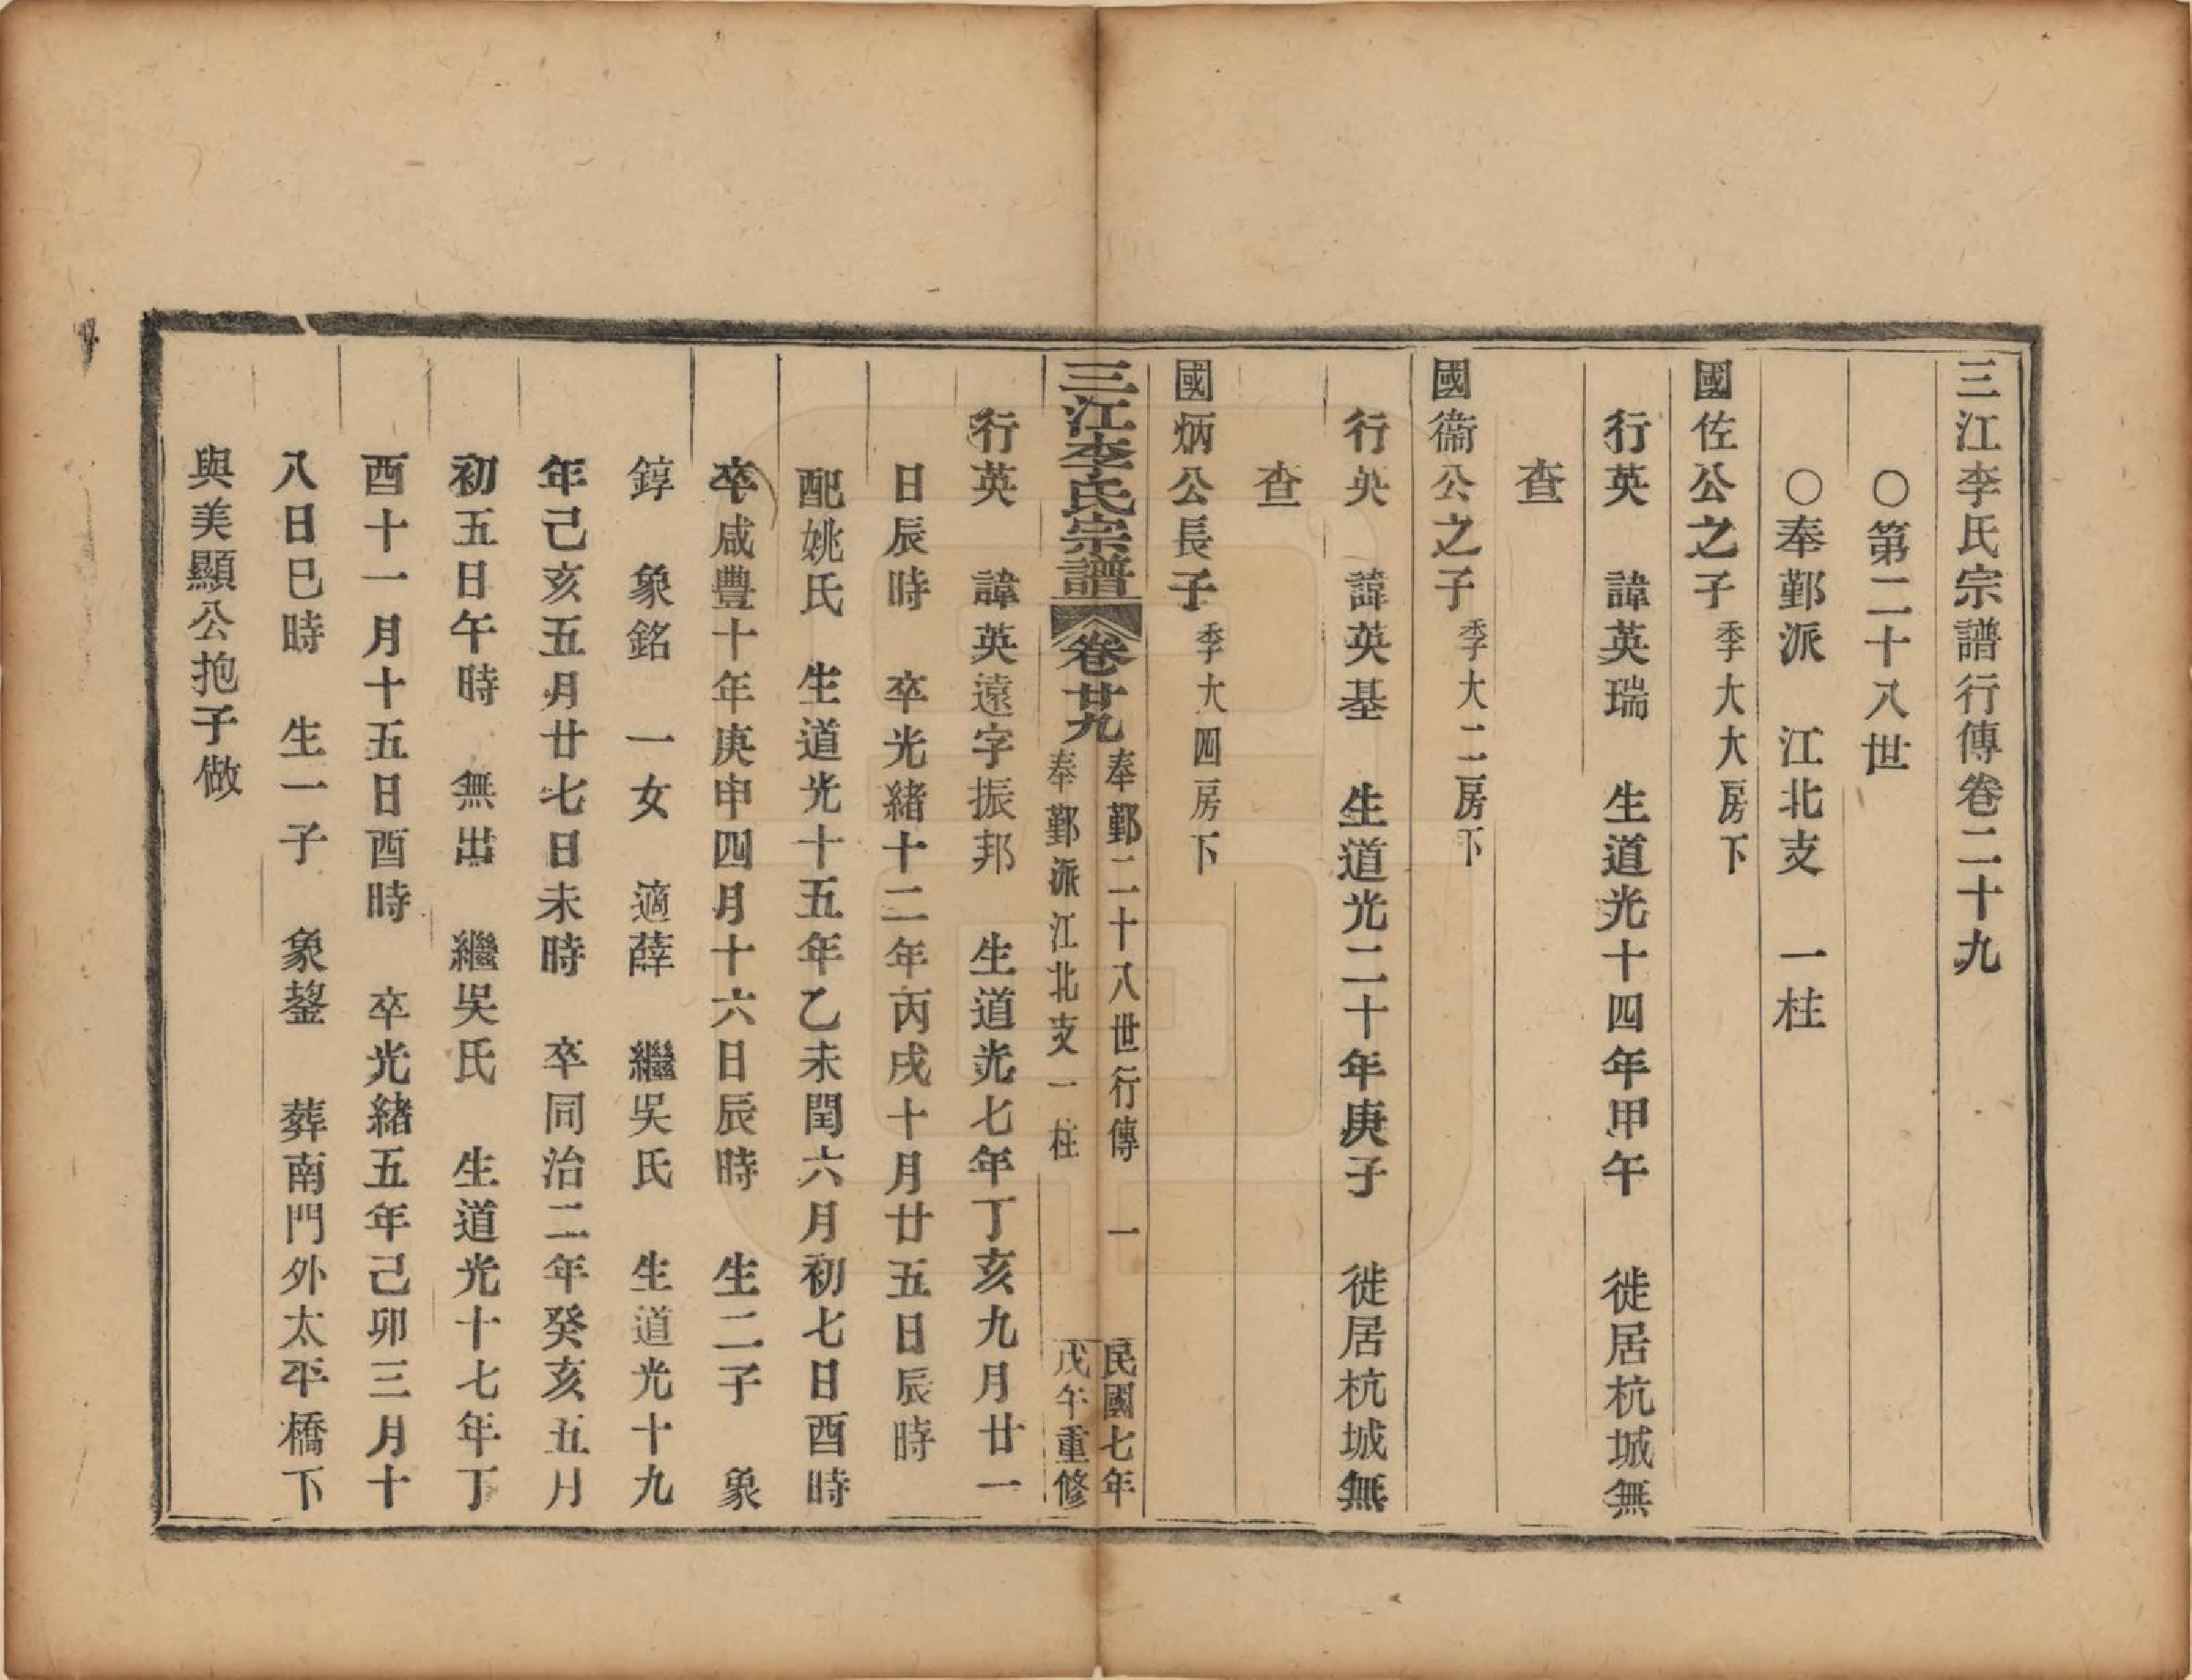 三江李氏宗譜行傳卷二十九
○第二十八世
○奉鄞派　江北支　一柱
國佐公之子季大大房下
行英　諱英瑞　生道光十四年甲午　徙居杭城無
查
國衞公之子季大二房下
行英　諱英基　生道光二十年庚子　徙居杭城無
查
國炳公長子季大四房下
三江李氏宗譜　卷廿九　奉鄞二十八世行傳　一　民國七年
奉鄞派江北支一柱　戊午重修
行英　諱英遠字振邦　生道光七年丁亥九月廿一
日辰時　卒光緒十二年丙戌十月廿五日辰時
配姚氏　生道光十五年乙未閏六月初七日酉時
卒咸豐十年庚申四月十六日辰時　生二子　象
錞　象銘　一女　適薛　繼吳氏　生道光十九
年己亥五月廿七日未時　卒同治二年癸亥五月
初五日午時　無出　繼吳氏　生道光十七年丁
酉十一月十五日酉時　卒光緒五年己卯三月十
八日巳時　生一子　象鋆　葬南門外太平橋下
與美顯公抱子做